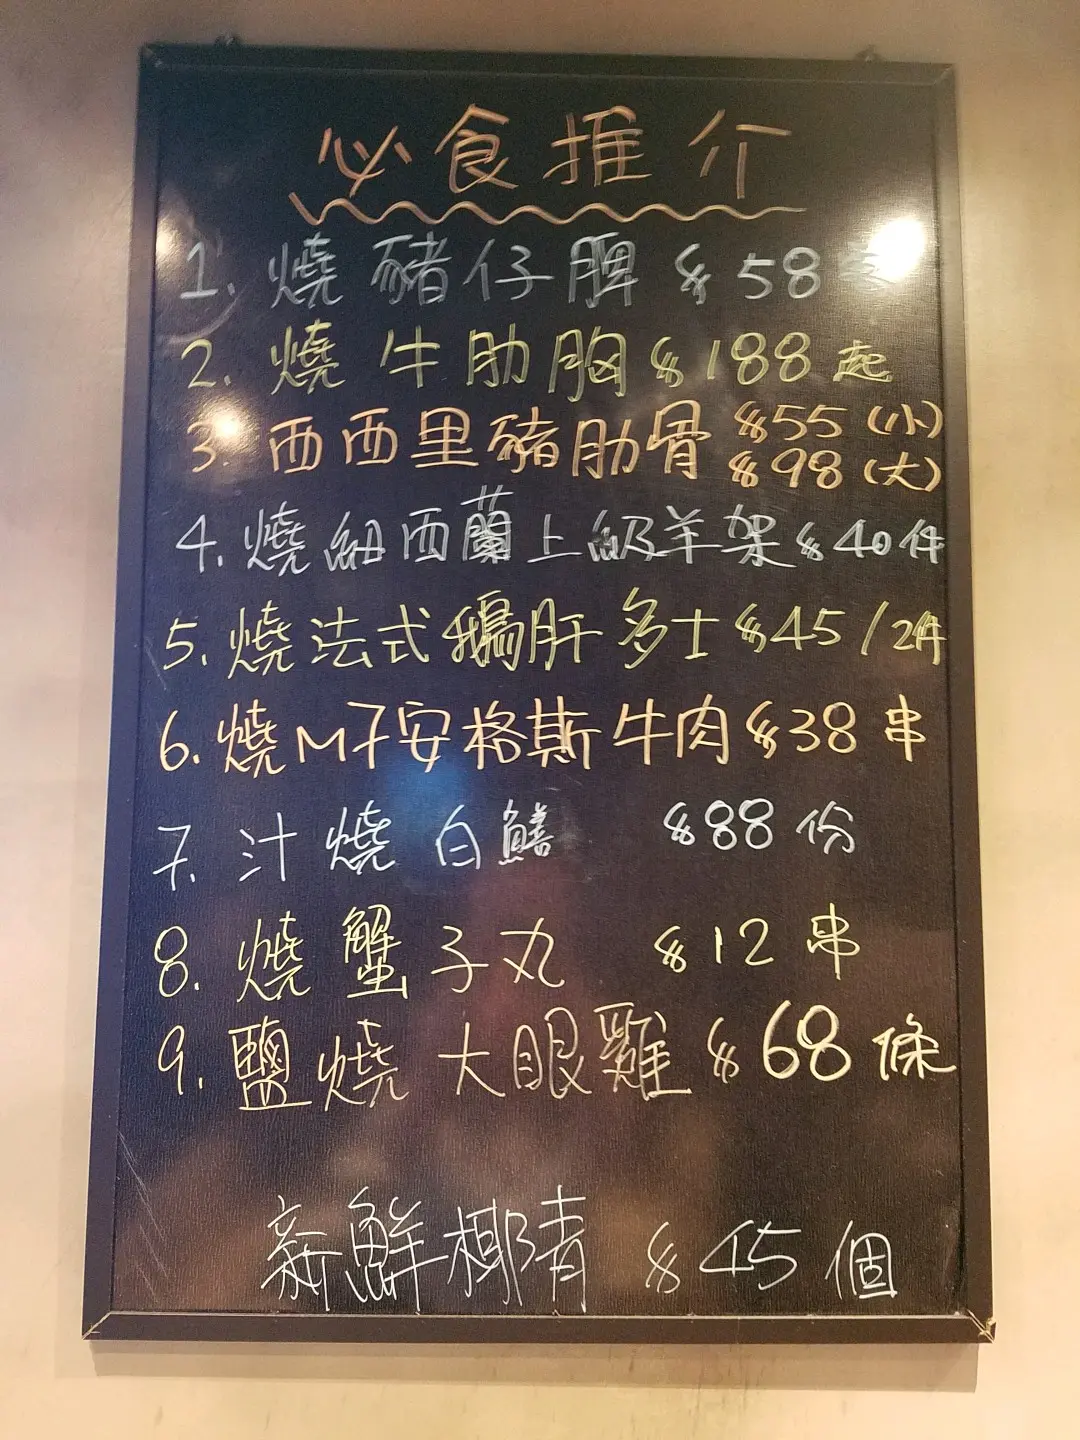 必食推介
1. 燒豬仔脾 $58
2. 燒牛肋胸 $188起
3. 西西里豬肋骨 $55 (小)
$98 (大)
4. 燒紐西蘭上級羊架 $40件
5. 燒法式鵝肝多士 $45/2件
6. 燒M7安格斯牛肉 $38串
7. 汁燒白鱔 $88份
8. 燒蟹子丸 $12串
9. 鹽燒大眼雞 $68條
新鮮椰青 $45個